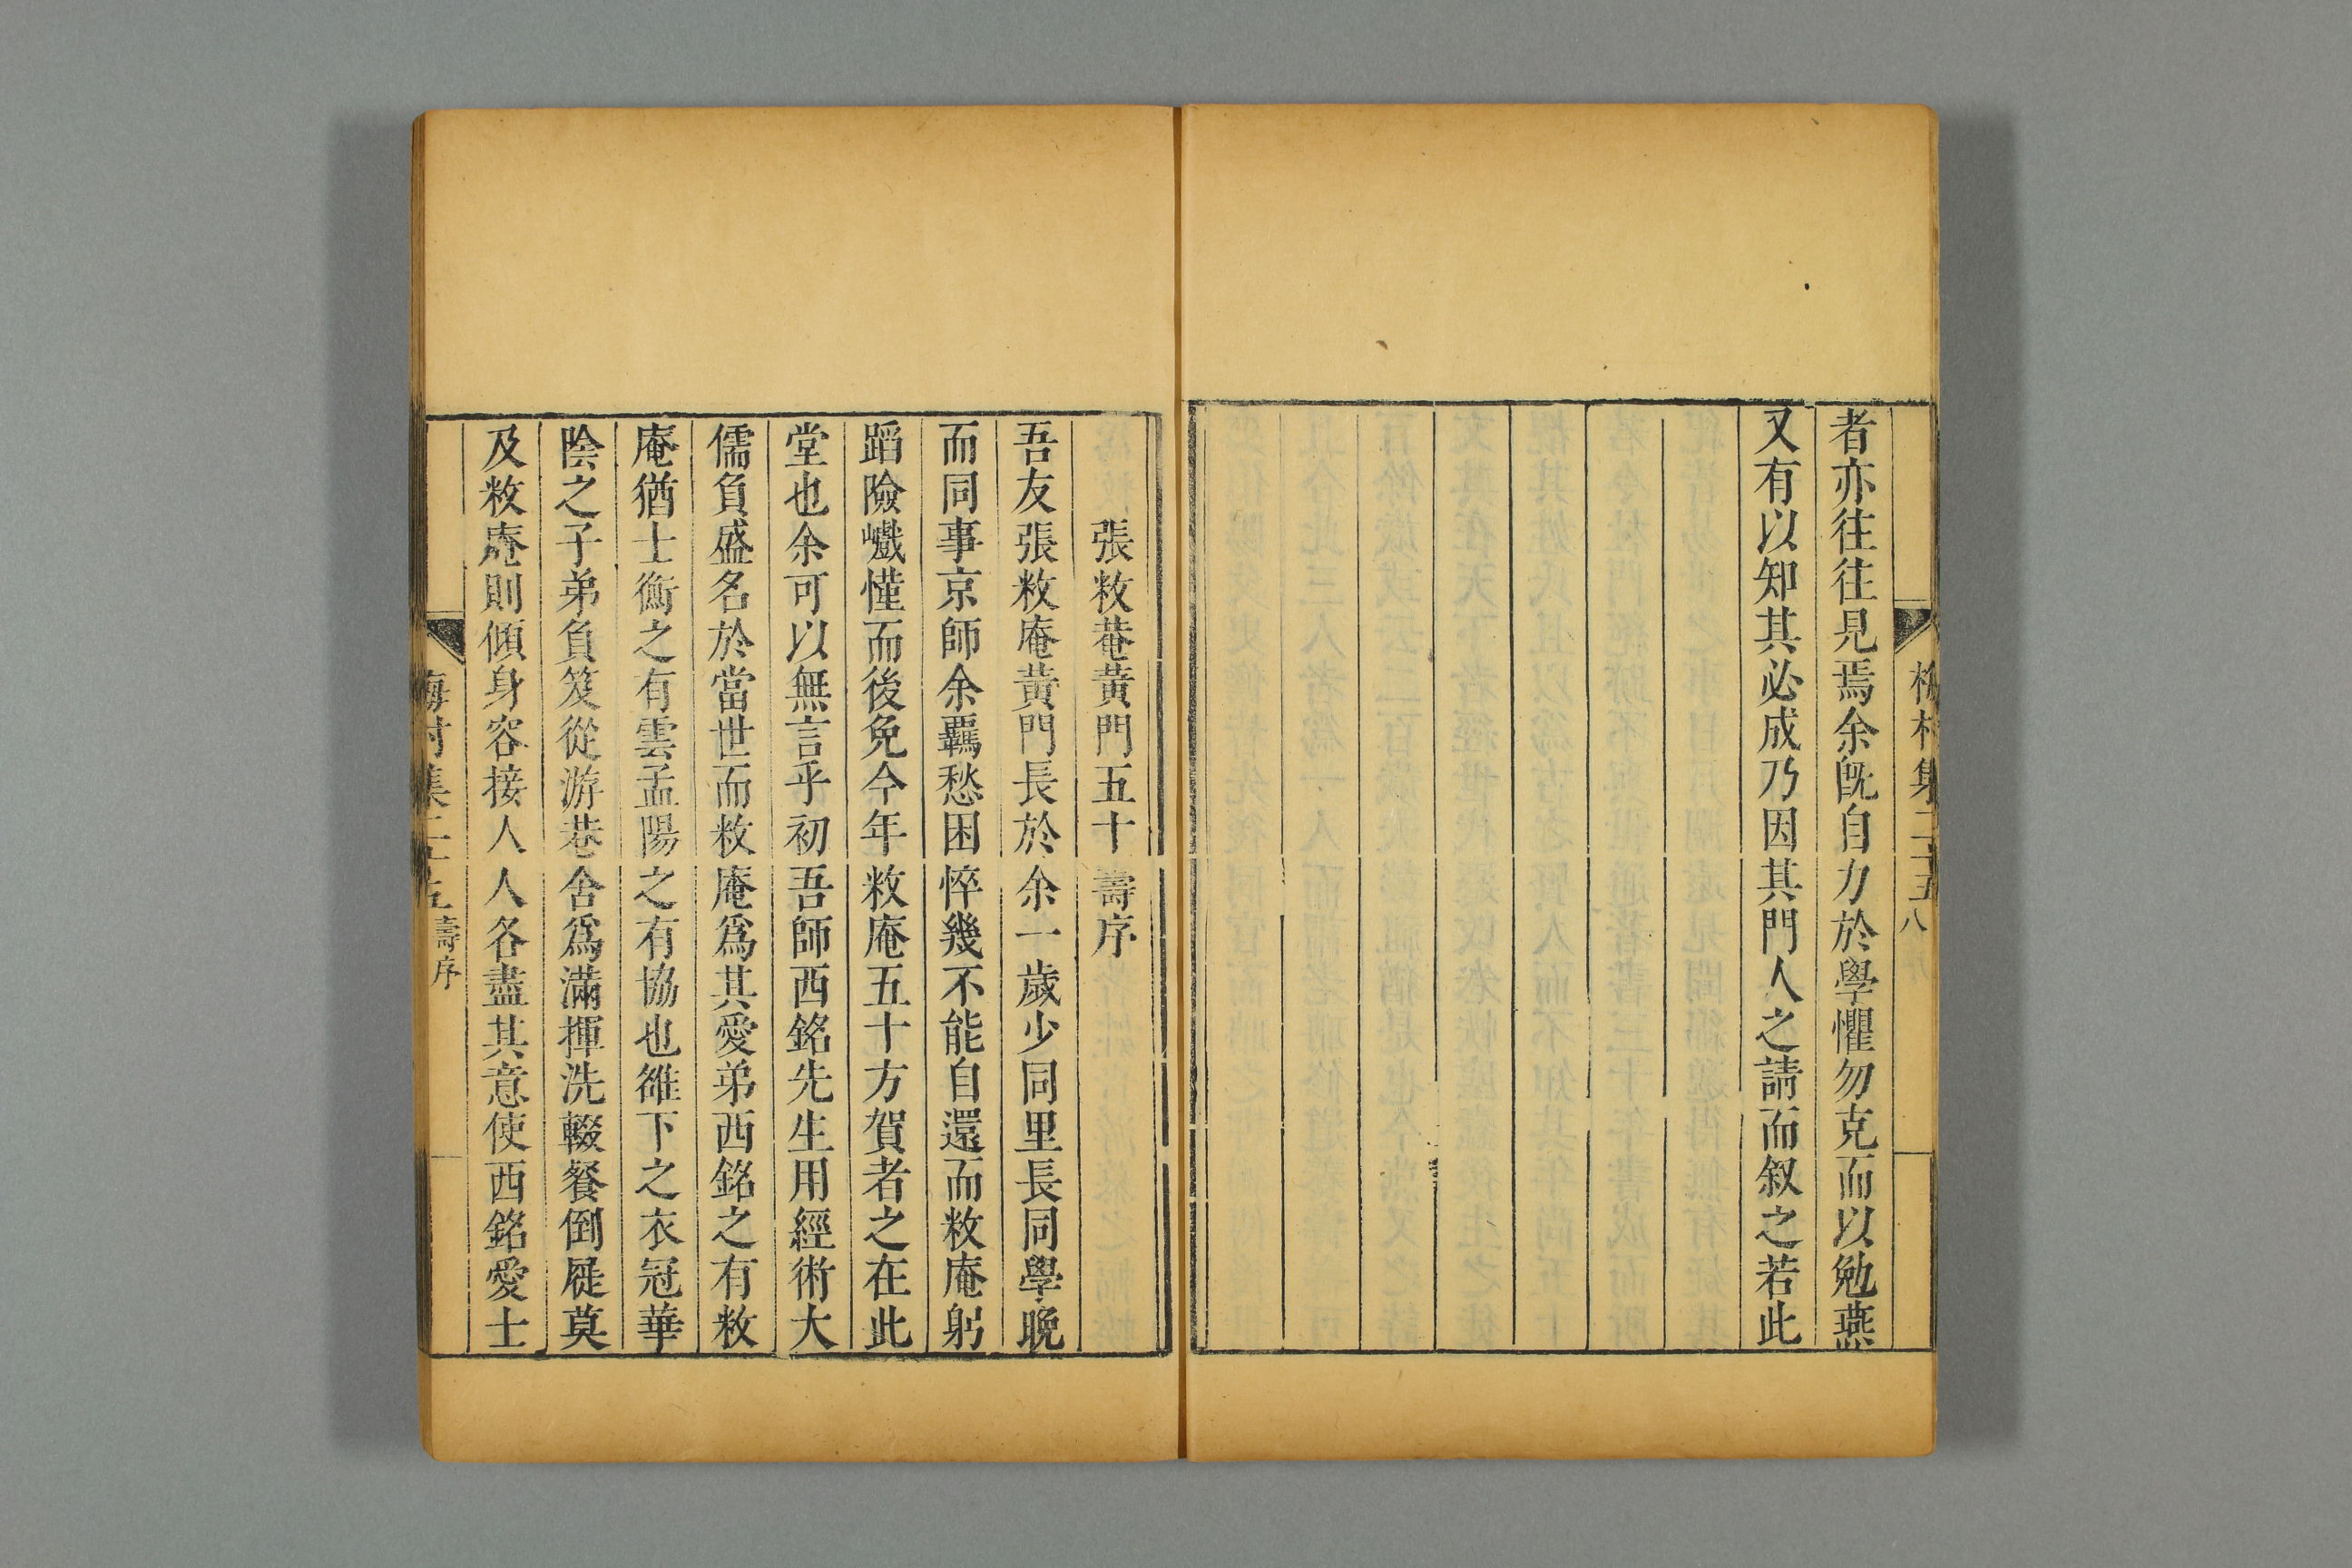 梅村集二十五 八
者亦往往見焉余旣自力於學懼勿克而以勉燕
又有以知其必成乃因其門人之請而叙之若此
張敉菴黃門五十壽序
吾友張敉庵黃門長於余一歲少同里長同學晩
而同事京師余羈愁困悴幾不能自還而敉庵躬
蹈險巇慬而後免今年敉庵五十方賀者之在此
堂也余可以無言乎初吾師西銘先生用經術大
儒負盛名於當世而敉庵爲其愛弟西銘之有敉
庵猶士衡之有雲孟陽之有協也雒下之衣冠華
陰之子弟負笈從游巷舍爲滿揮洗輟餐倒屣莫
及敉庵則傾身容接人人各盡其意使西銘愛士
梅村集二十五 壽序